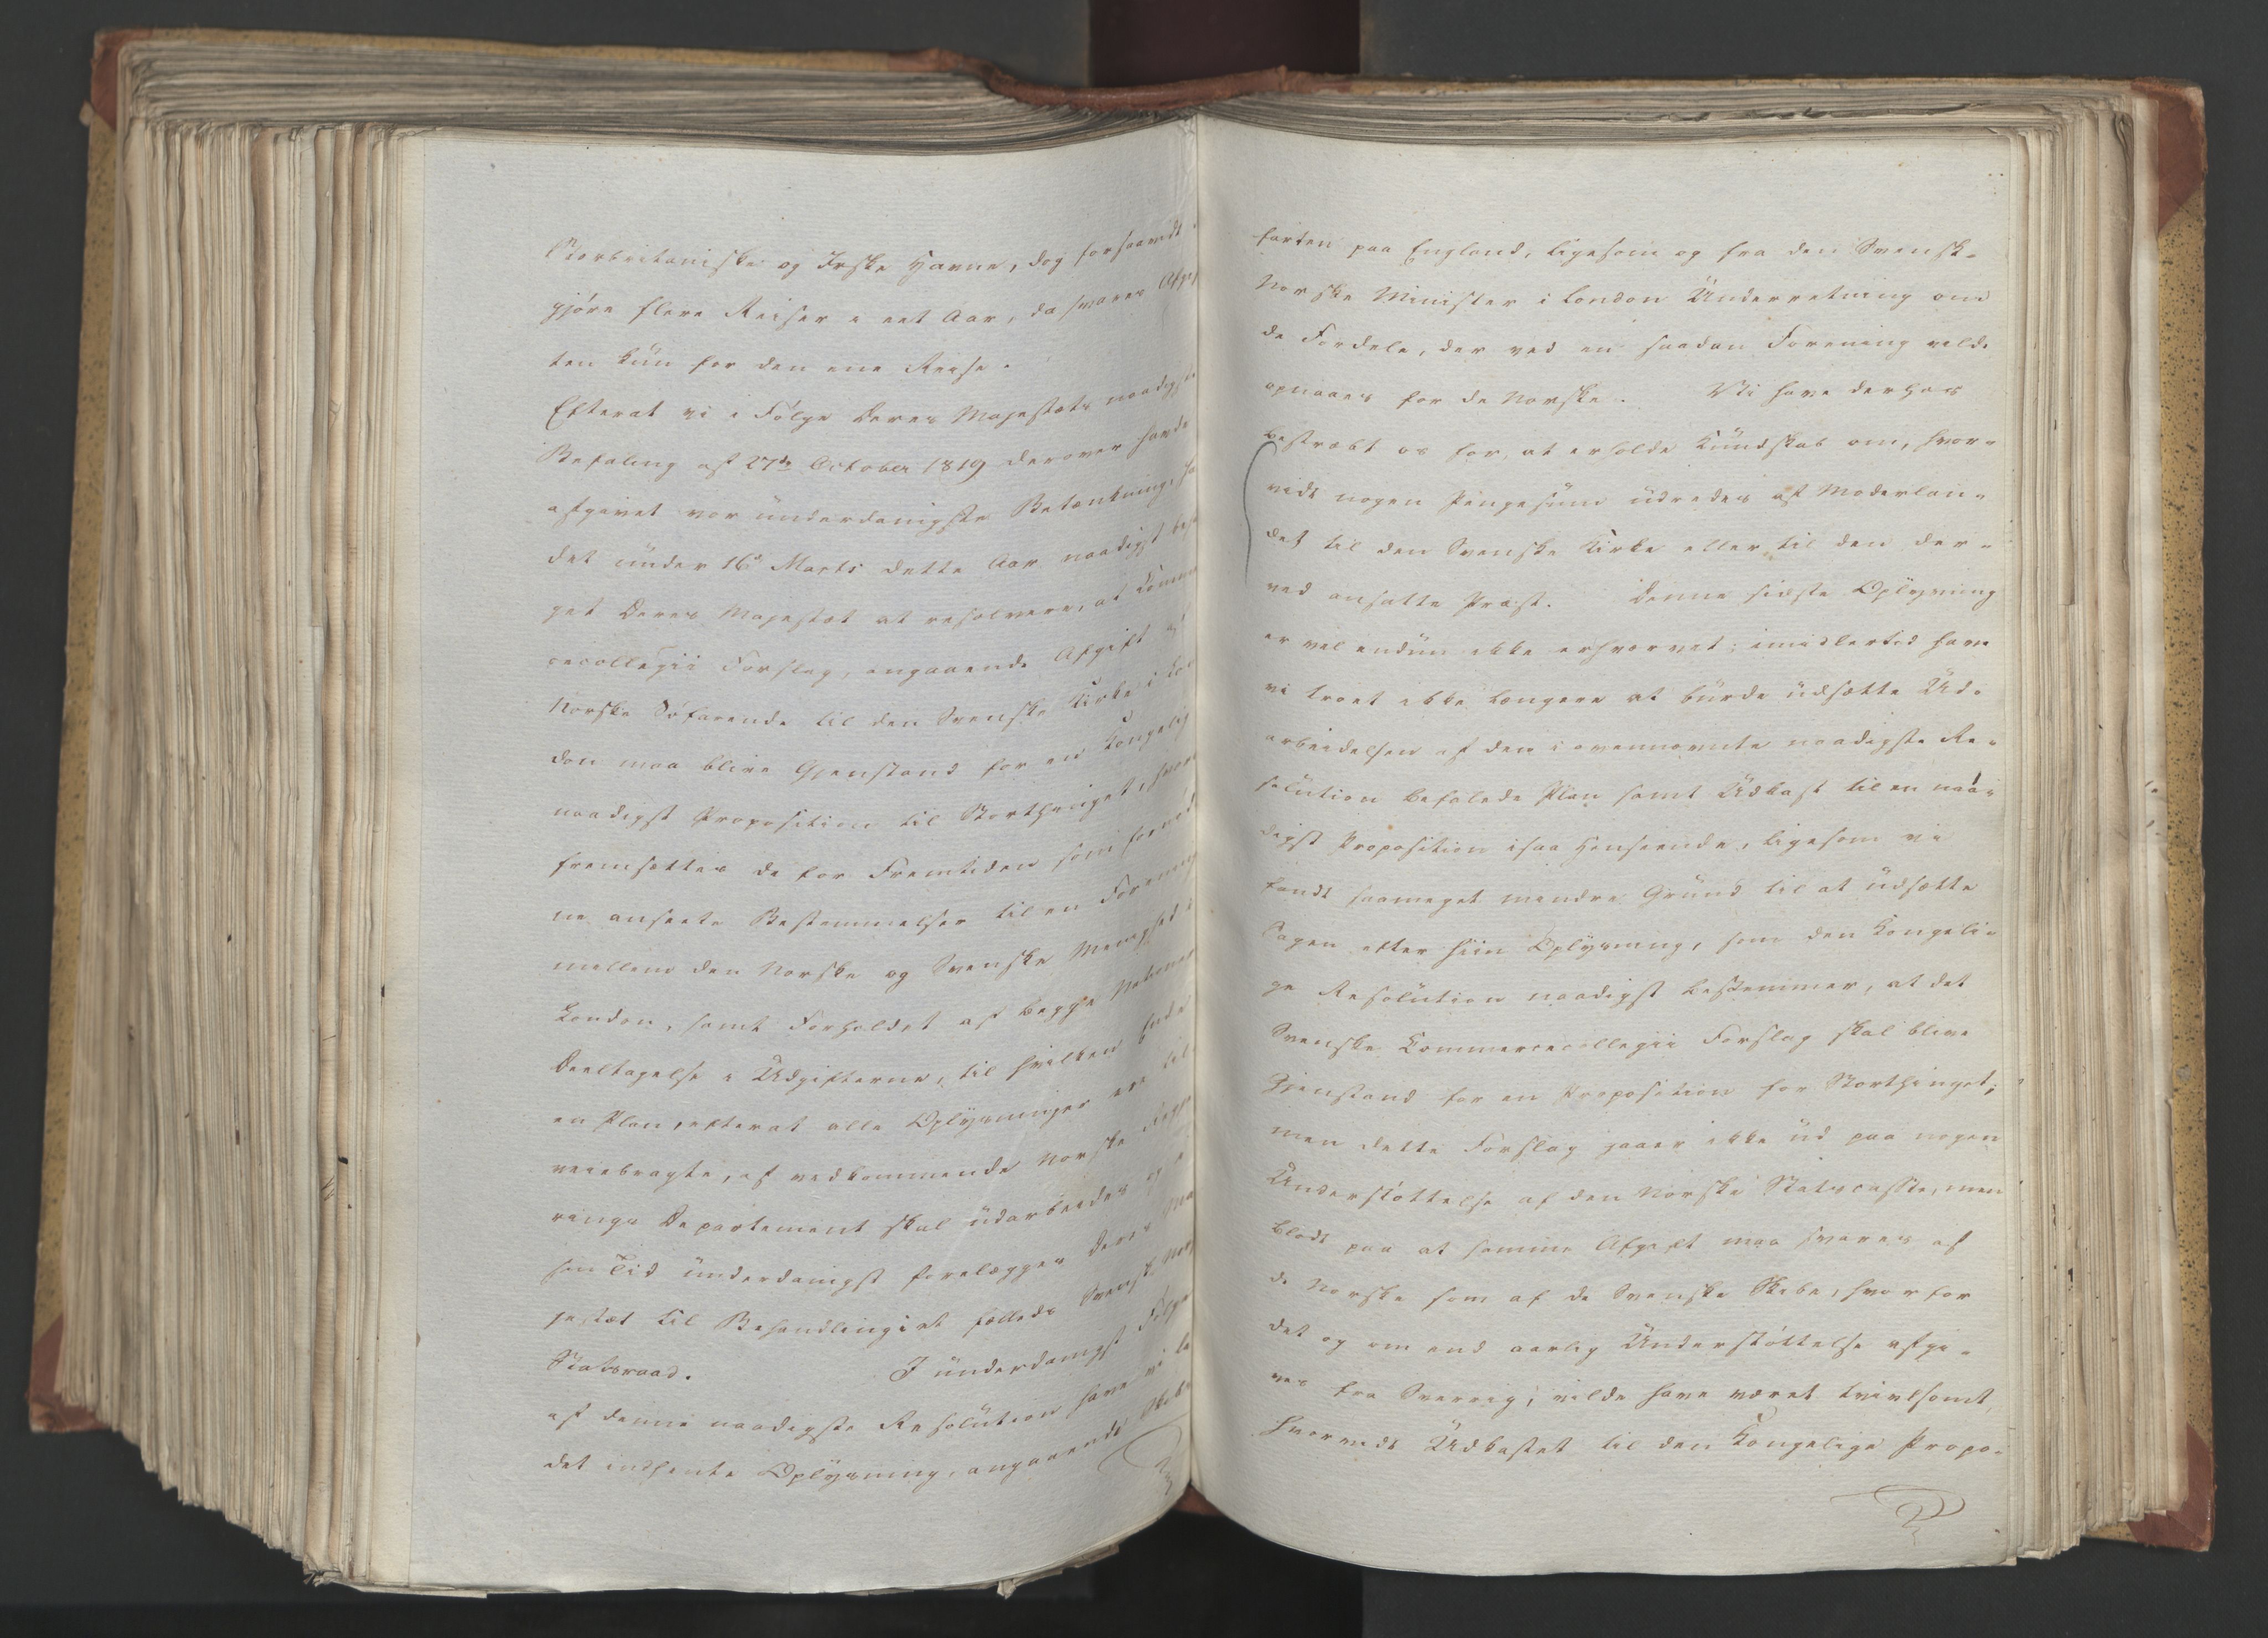 Storbritaniske og Irske Havne, dog forsaavidt
gjöre flere Reiser i eet Aar, da svares Afgif
ten kun for den ene Reise.
Efterat vi i Følge Deres Majestæts naadigste
Befaling af 27de October 1819 derover havde
afgivet vor underdanigste Betænkning, ha
det under 16de Marts dette Aar naadigst beha
get Deres Majestæt at resolvere, at Comme
cecollegii Forslag, angaaende Afgift af
Norske Söfarende til den Svenske Kirke i Lon
don maa blive Gjenstand for en Kongelig
naadigst Proposition til Storthinget, hvori
fremsættes de for Fremtiden som fornöd
ne ansete Bestemmelser til en Forening
mellem den Norske og Svenske Menighed i
London, samt Forholdet af begge Nationers
Deeltagelse i Udgifterne, til hvilken Ende
en Plan, efterat alle Oplysninger ere til
veiebragte, af vedkommende Norske Regje
rings Departement skal udarbeides og i
sin Tid underdanigst forelægges Deres Ma
jestæt til Behandling i et fælleds Svensk Norsk
Statsraad. I underdanigst Følge
af denne naadigste Resolution have vi la
det indhente Oplysning, angaaende Skibs-
farten paa England, ligesom og fra den Svensk-
Norske Minister i London Underretning om
de Fordele, der ved en saadan Forening vilde
opnaaes for de Norske. Vi have derhos
bestræbt os for, at erholde Kundskab om, hvor-
vidt nogen Pengesum udredes af Moderlan-
det til den Svenske Kirke eller til den der-
ved ansatte Præst. Denne sidste Oplysning
er vel endnu ikke erhvervet; imidlertid have
vi troet ikke længere at burde udsætte Ud-
arbeidelsen af den i ovennævnte naadigste Re-
solution befalede Plan samt Udkast til en naa-
digst Proposition i saa Henseende, ligesom vi
fandt saameget mindre Grund til at udsætte
Sagen efter hiin Oplysning, som den Kongeli-
ge Resolution naadigst bestemmer, at det
Svenske Commercecollegii Forslag skal blive
Gjenstand for en Proposition for Storthinget;
men dette Forslag gaaer ikke ud paa nogen
Understöttelse af den Norske Statscasse, men
blot paa at samme Afgift maa svares af
de Norske som af de Svenske Skibe, hvorfor
det og om end aarlig Understöttelse afgi-
ves fra Sverrig, vilde have været tvivlsomt,
hvorvidt Udkastet til den Kongelige Propo-